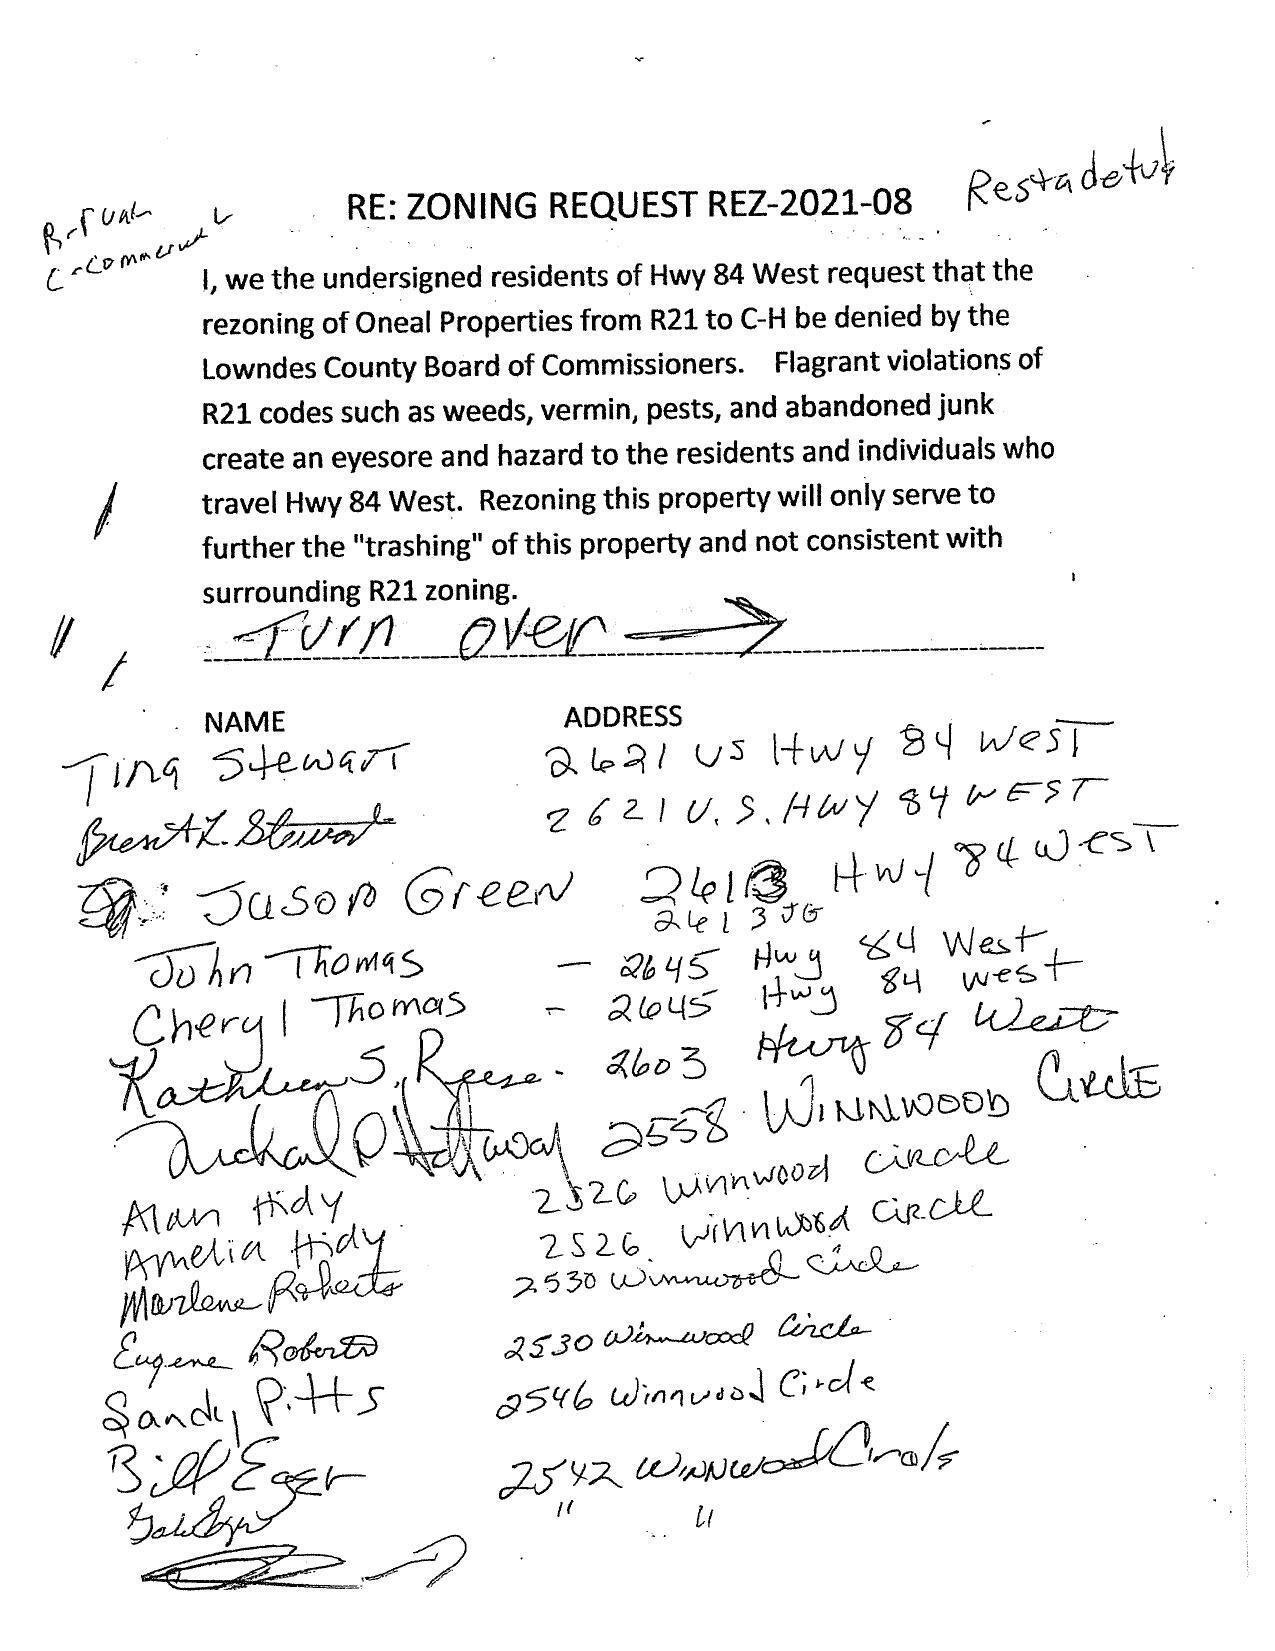 RE: ZONING REQUEST REZ-2021-08
R-rural
C-Commercial
I, we the undersigned residents of Hwy 84 West request that the
rezoning of Oneal Properties from R21 to C-H be denied by the
Lowndes County Board of Commissioners. Flagrant violations of
R21 codes such as weeds, vermin, pests, and abandoned junk
create an eyesore and hazard to the residents and individuals who
travel Hwy 84 West. Rezoning this property will only serve to
further the "trashing" of this property and not consistent with
surrounding R21 zoning.
Turn over
NAME ADDRESS
Tina Stewart 2621 US Hwy 84 West
Brent L. Stewart 2621 U.S. HWY 84 WEST
Jason Green 2613 Hwy 84 West
2613 JG
John Thomas - 2645 Hwy 84 West
Cheryl Thomas - 2645 Hwy 84 West
Kathleen S. Reese - 2603 Hwy 84 West
Michael P Hattaway 2558 WINNWOOD CIRCLE
Alan Hidy 2526 Winnwood Circle
Amelia Hidy 2526 Winnwood Circle
Marlene Roberts 2530 Winnwood Circle
Eugene Roberts 2530 Winnwood Circle
Sandy Pitts 2546 Winnwood Circle
Bill Eger 2542 WINNWOOD Circle
" "